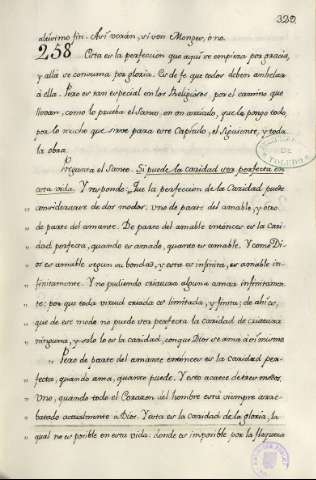 329
altísimo fin. Así verán, si son Monges, ó no.
258 Esta es la perfeccion que aquí se empieza por gracia,
y allá se consuma por gloria. Es de fe que todos deben anhelar
á ella. Pero es tan especial en los Religiosos por el camino que
llevan, como lo prueba el Santo, en un articulo, que lo pongo todo,
por lo mucho que sirve para este Capitulo, el siguiente, y toda
la obra.
Pregunta el Santo. Si puede la caridad ser perfecta en
esta vida. Y responde: Que la perfeccion de la Caridad puede
" considerarse de dos modos. Uno de parte del amable, y otro
" de parte del amante. De parte del amable entónces es la Cari-
" dad perfecta, quando es amado, quanto es amable. Y como Di-
" os es amable segun su bondad, y esta es infinita, es amable in-
" finitamente. Y no pudiendo criatura alguna amar infinitamen-
" te: por que toda virtud criada es limitada, y finita; de ahí es,
" que de ese modo no puede ser perfecta la caridad de criatura
" ninguna, y solo lo es la caridad, con que Dios se ama á sí mismo
" Pero de parte del amante entónces es la Caridad per-
" fecta, quando ama, quanto puede. Y esto acaece de tres modos.
" Uno, quando todo el Corazon del hombre está siempre arre-
" batado actualmente á Dios. Y esta es la caridad de la gloria, la
qual no es posible en esta vida: donde es imposible por la flaqueza
DE
TOLEDO